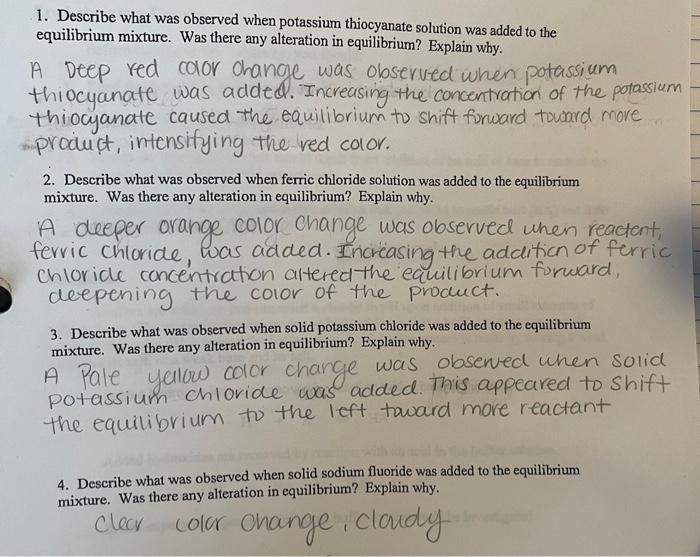 1. Describe what was observed when potassium thiocyanate solution was added to the
equilibrium mixture. Was there any alteration in equilibrium? Explain why.
A Deep red color change was observed when potassium
thiocyanate was added. Increasing the concentration of the potassium
thiocyanate caused the equilibrium to shift forward toward more
product, intensifying the red color.
2. Describe what was observed when ferric chloride solution was added to the equilibrium
mixture. Was there any alteration in equilibrium? Explain why.
A deeper orange color change was observed when reactent,
ferric chloride, was added. Increasing the addition of ferric
chloride concentration altered the equilibrium forward,
deepening the color of the product.
3. Describe what was observed when solid potassium chloride was added to the equilibrium
mixture. Was there any alteration in equilibrium? Explain why.
A Pale yellow color change was observed when solid
potassium chloride was added. This appeared to shift
the equilibrium to the left toward more reactant
4. Describe what was observed when solid sodium fluoride was added to the equilibrium
mixture. Was there any alteration in equilibrium? Explain why.
clear color change, cloudy